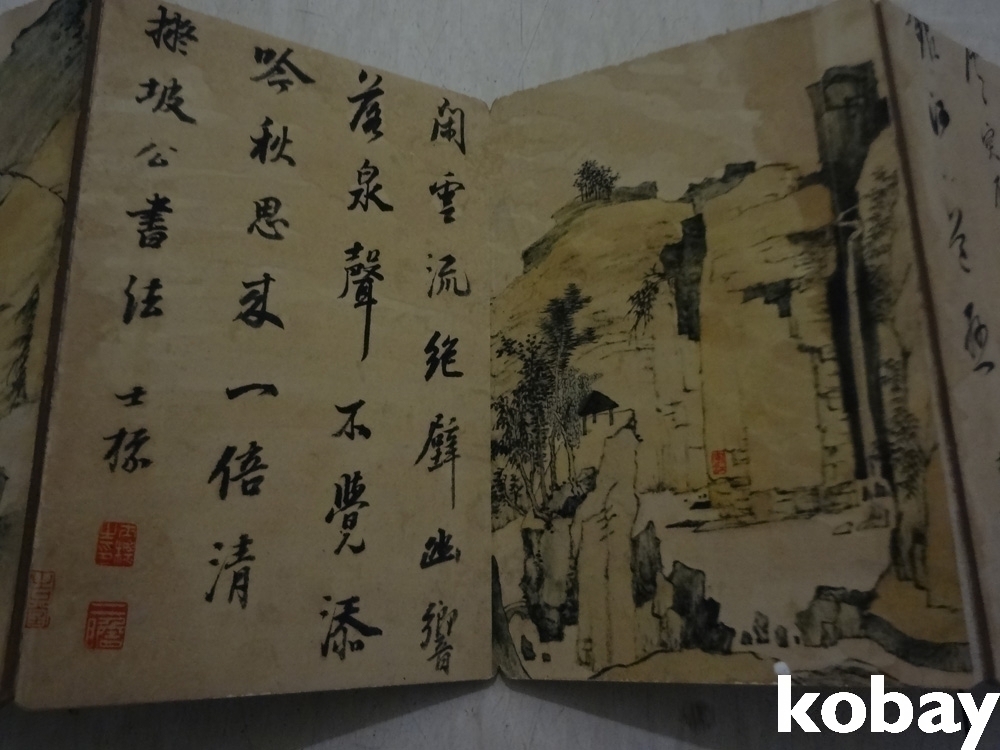 閑雲流絶壁幽響
落泉聲不覺添
吟秋思来一倍清
擬坡公書法 士標
kobay